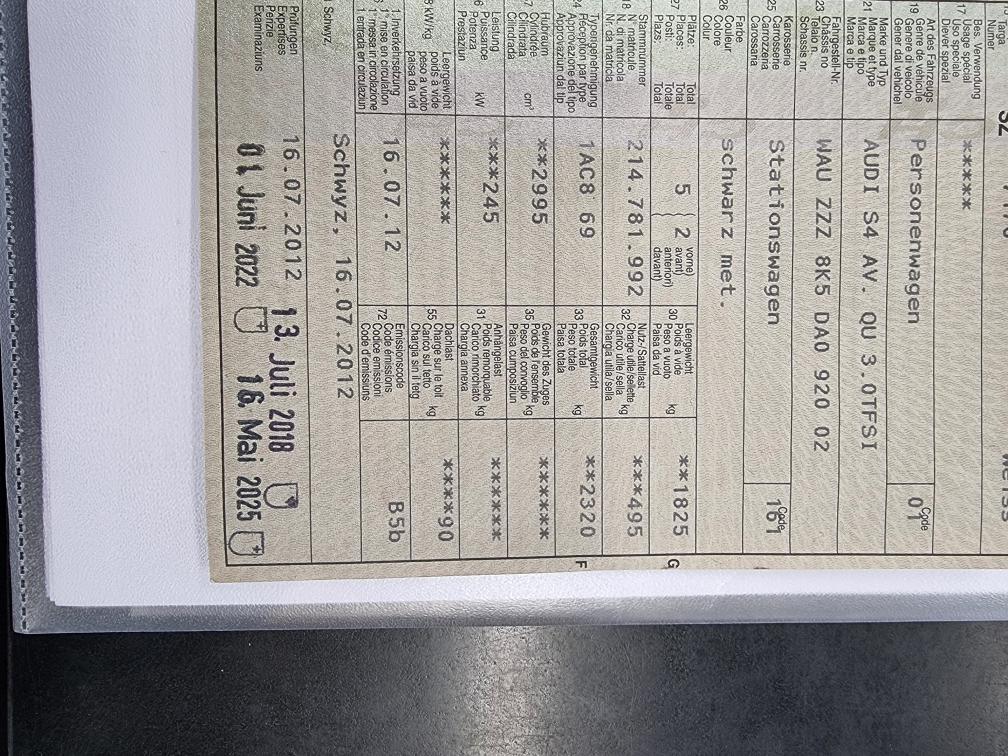 Numer
17 Bes. Verwendung
Usage spécial
Uso speciale
Diever spezial
*****
19 Art des Fahrzeugs
Genre de véhicule
Genere di veicolo
Gener dal vehichel
Personenwagen
Code
01
21 Marke und Typ
Marque et type
Marca e tipo
Marca e tip
AUDI S4 AV. QU 3.0TFSI
23 Fahrgestell-Nr.
Châssis no
Telaio n.
Schassis nr.
WAU ZZZ 8K5 DA0 920 02
25 Karosserie
Carrosserie
Carrozzeria
Carossaria
Stationswagen
Code
161
26 Farbe
Couleur
Colore
Colur
schwarz met.
27 Plätze: Total
Places: Total
Posti: Totale
Plazs: Total
5 2 vorne)
avant)
anteriori)
davant)
30 Leergewicht
Poids à vide
Peso a vuoto
Paisa da vid
kg
**1825
G
18 Stammnummer
N° matricule
N. di matricola
Nr. da matricla
214.781.992
32 Nutz-/Sattellast
Charge utile/sellette
Carico utile/sella
Chargia utila/sella
kg
***495
24 Typengenehmigung
Réception par type
Approvazione del tipo
Approvaziun dal tip
1AC8 69
33 Gesamtgewicht
Poids total
Peso totale
Paisa totala
kg
**2320
F
37 Hubraum
Cylindrée
Cilindrata
Cilindrada
cm³
**2995
35 Gewicht des Zuges
Poids de l'ensemble
Peso del convoglio
Paisa cumposiziun
kg
******
76 Leistung
Puissance
Potenza
Prestaziun
kW
***245
31 Anhängelast
Poids remorquable
Carico rimorchiato
Chargia annexa
kg
******
kW/kg
Leergewicht
poids à vide
peso a vuoto
paisa da vid
******
55 Dachlast
Charge sur le toit
Carico sul tetto
Chargia sin il tetg
kg
****90
1. Inverkehrsetzung
1re mise en circulation
1a messa in circolazione
1. entrada en circulaziun
16.07.12
72 Emissionscode
Code émissions
Codice emissioni
Code d'emissiuns
B5b
Schwyz,
Schwyz, 16.07.2012
Prüfungen
Expertises
Perizie
Examinaziuns
16.07.2012 13. Juli 2018
01. Juni 2022 16. Mai 2025